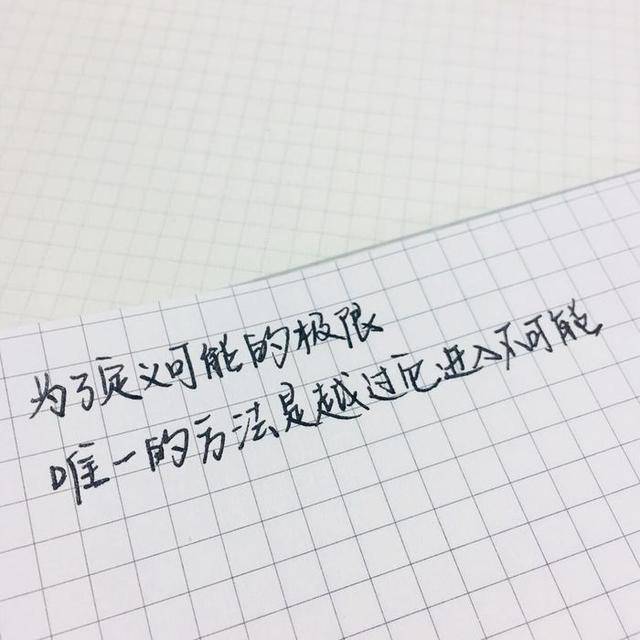 为了定义可能的极限
唯一的方法是越过它进入不可能